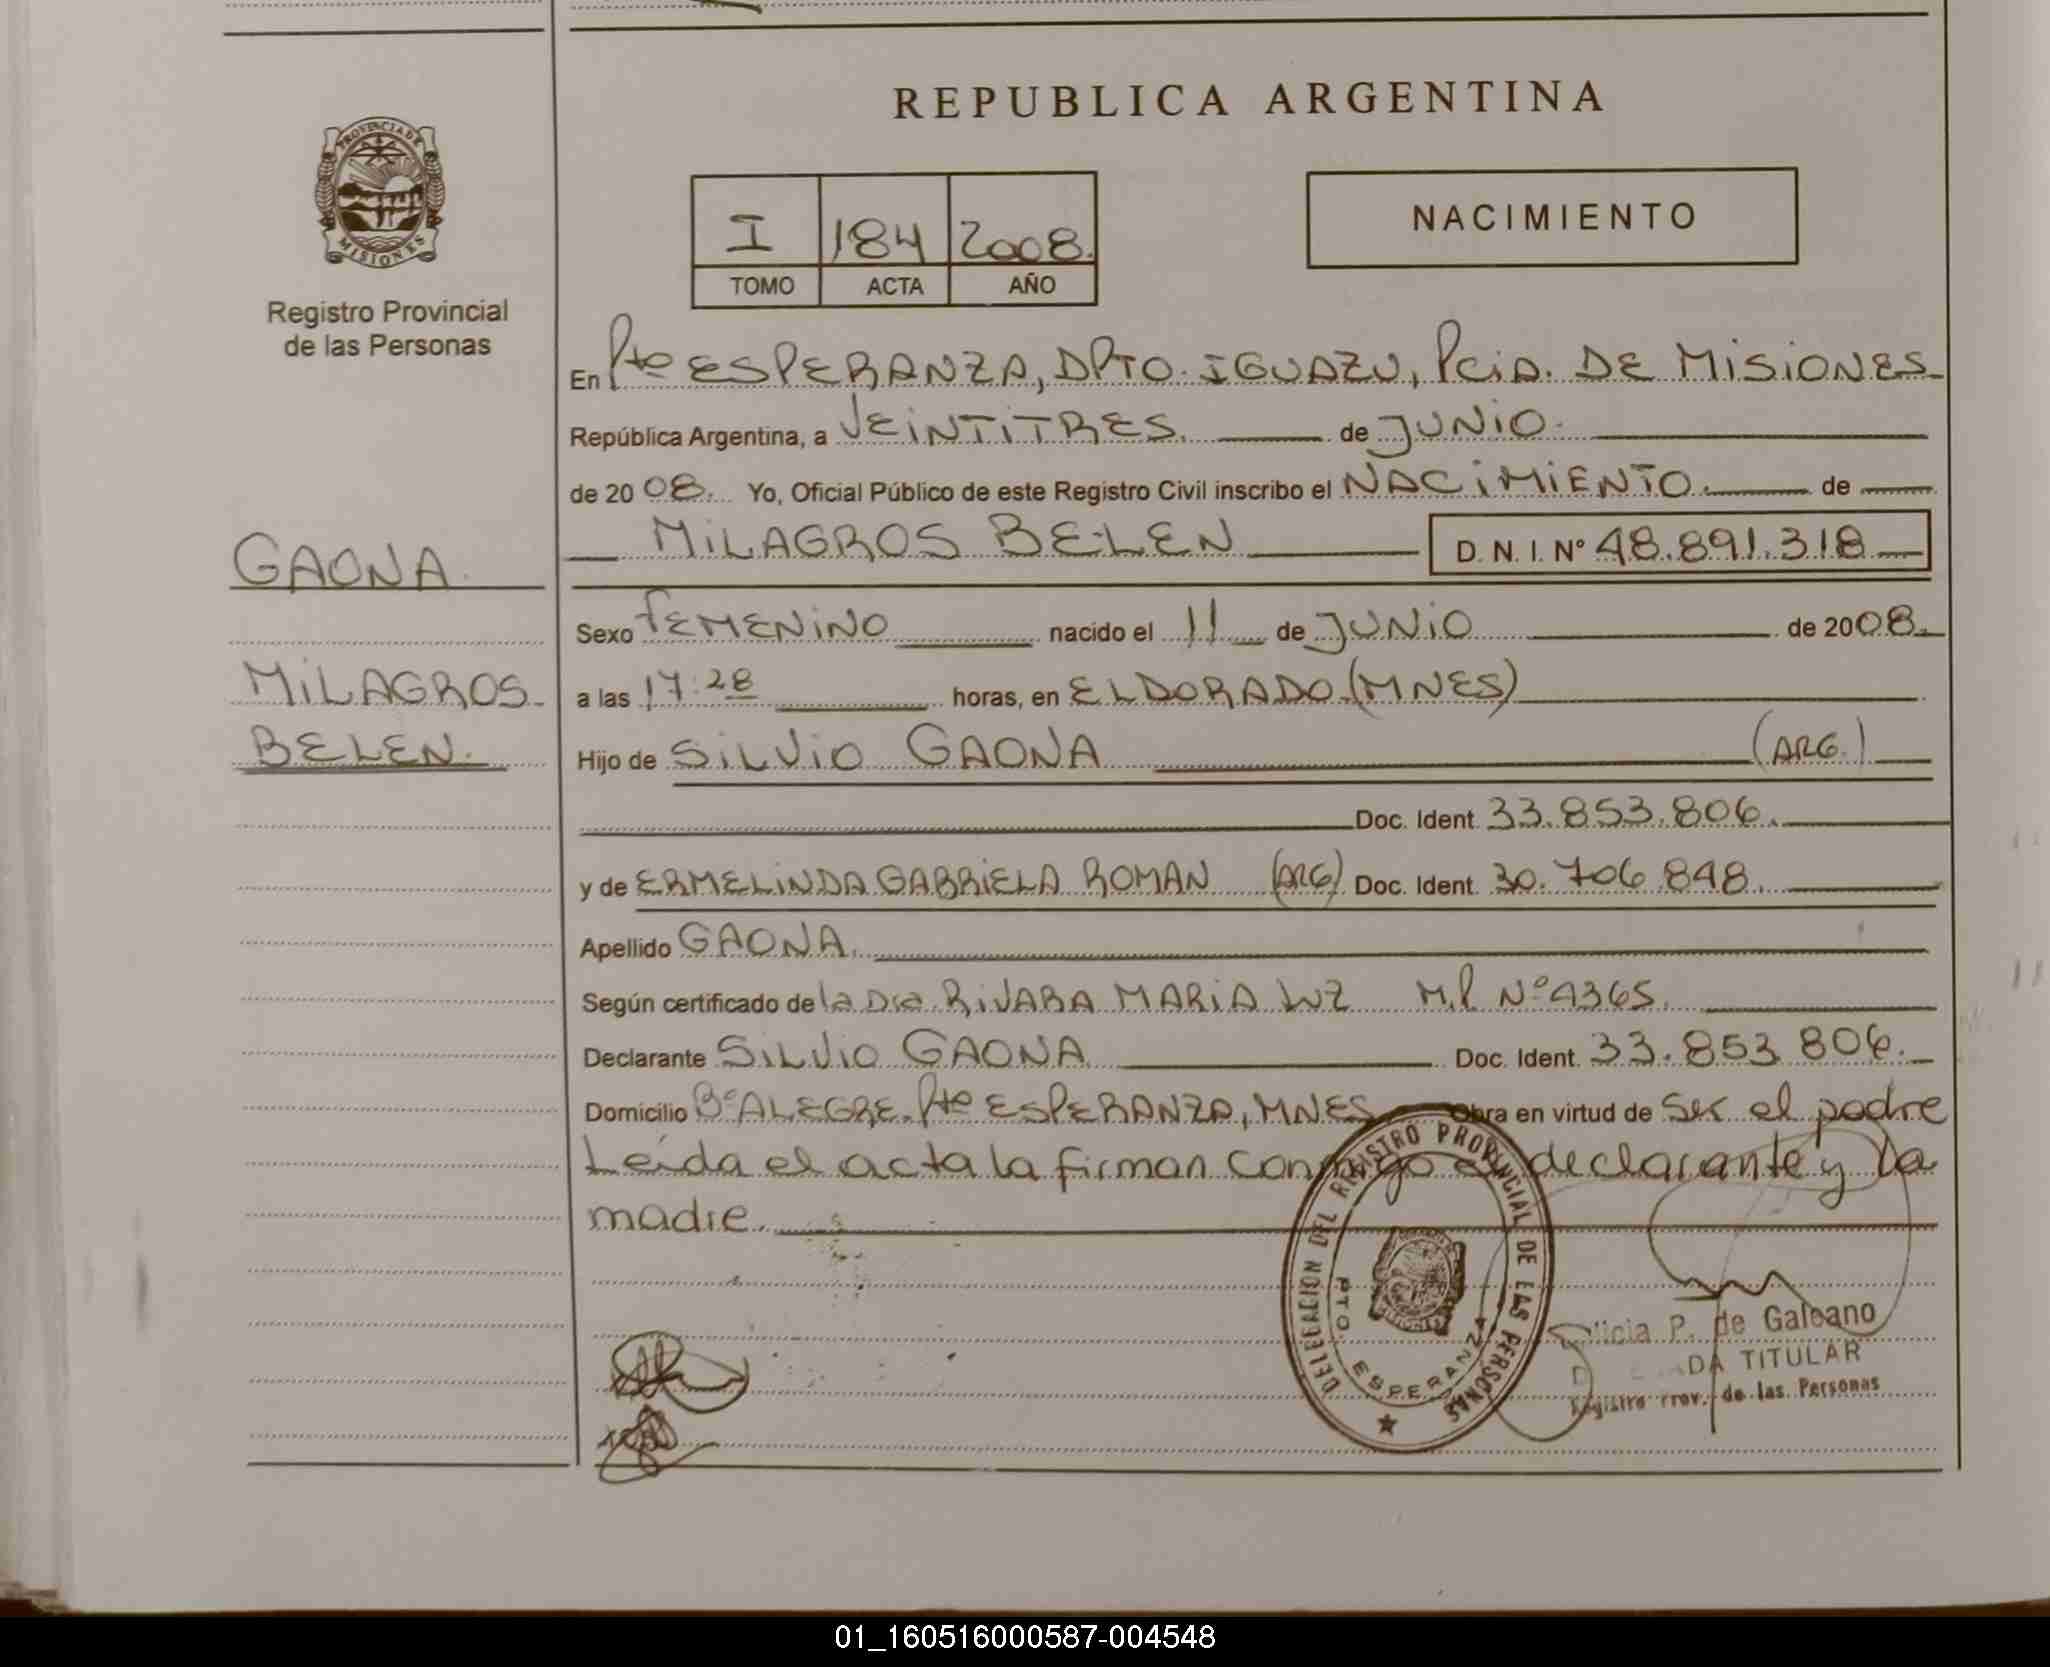 REPUBLICA ARGENTINA
PROVINCIA DE
MISIONES
Registro Provincial
de las Personas
I 184 2008.
TOMO ACTA AÑO
NACIMIENTO
En Pto ESPERANZA, DPTO. IGUAZU, PciA. DE MISIONES
República Argentina, a VEINTITRES. de JUNIO.
de 20 08. Yo, Oficial Público de este Registro Civil inscribo el NACIMIENTO. de
GAONA.
MILAGROS BELEN D. N. I. N° 48.891.318
Sexo FEMENINO nacido el 11 de JUNIO de 2008.
MILAGROS
BELEN.
a las 17:28 horas, en ELDORADO (MNES)
Hijo de SILVIO GAONA (ARG.)
Doc. Ident. 33.853.806.
y de ERMELINDA GABRIELA ROMAN (ARG) Doc. Ident. 30.706.848.
Apellido GAONA.
Según certificado de la Dra. RIVARA MARIA LUZ M.P. N° 4365.
Declarante SILVIO GAONA Doc. Ident. 33.853 806.
Domicilio B° ALEGRE, Pto ESPERANZA, MNES Obra en virtud de Ser el padre
Leída el acta la firman conmigo el declarante y la
madre.
DELEGACION DEL REGISTRO PROVINCIAL DE LAS PERSONAS
PTO. ESPERANZA
P. de Galeano
TITULAR
Registro Prov. de las Personas
01_160516000587-004548